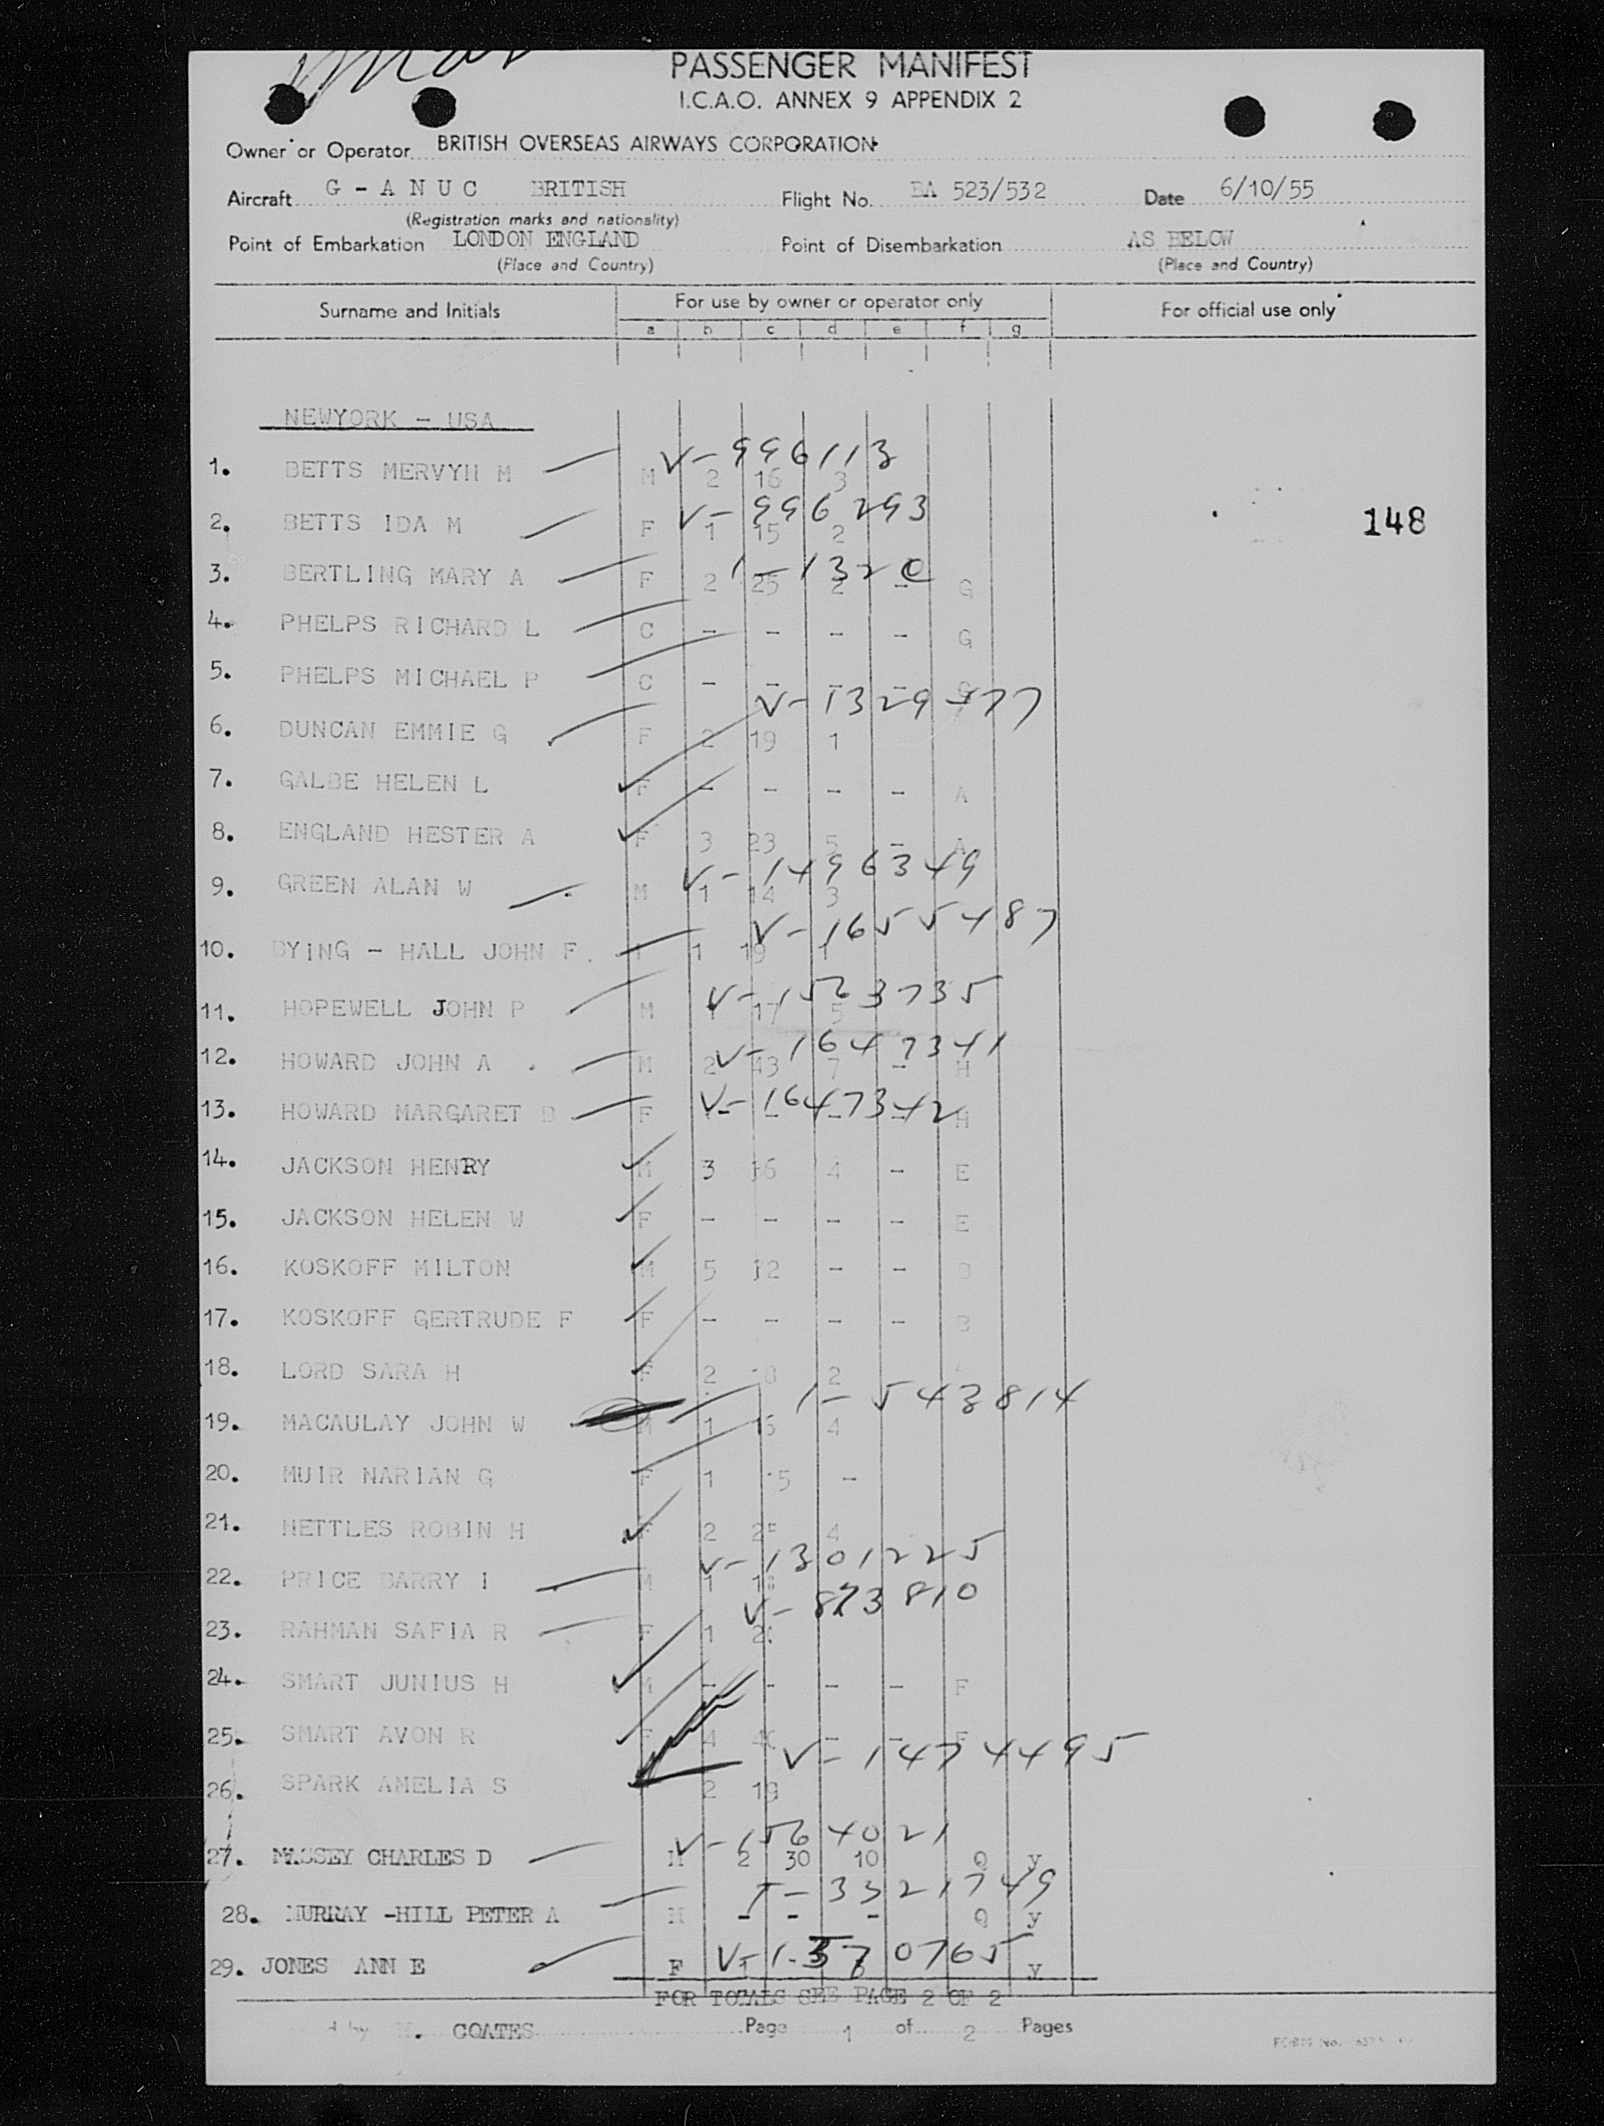 PASSENGER MANIFEST
I.C.A.O. ANNEX 9 APPENDIX 2
Owner or Operator BRITISH OVERSEAS AIRWAYS CORPORATION
Aircraft G - A N U C BRITISH Flight No. BA 523/532 Date 6/10/55
(Registration marks and nationality)
Point of Embarkation LONDON ENGLAND Point of Disembarkation AS BELOW
(Place and Country) (Place and Country)
Surname and Initials For use by owner or operator only For official use only
a b c d e f g
NEWYORK - USA
V-996113
1. BETTS MERVYN M M 2 16 3
V-996293
2. BETTS IDA M F 1 15 2
148
1-1320
3. BERTLING MARY A F 2 25 2 - G
4. PHELPS RICHARD L C - - - - G
5. PHELPS MICHAEL P C - - - - G
V-1329477
6. DUNCAN EMMIE G F 2 19 1
7. GALBE HELEN L F - - - - A
8. ENGLAND HESTER A F 3 23 5 - A
V-1496349
9. GREEN ALAN W M 1 14 3
V-1655487
10. BYING - HALL JOHN F. 1 19 1
V-1563735
11. HOPEWELL JOHN P M 1 17 5
V-1647341
12. HOWARD JOHN A M 2 43 7 - H
V-1647342
13. HOWARD MARGARET B F - - - - H
14. JACKSON HENRY M 3 36 4 - E
15. JACKSON HELEN W F - - - - E
16. KOSKOFF MILTON M 5 32 - - B
17. KOSKOFF GERTRUDE F F - - - - B
18. LORD SARA H F 2 2
1-543814
19. MACAULAY JOHN W M 1 15 4
20. MUIR NARIAN G F 1 5 -
21. NETTLES ROBIN H 2 25 4
V-1301225
22. PRICE BARRY I M 1
V-873810
23. RAHMAN SAFIA R F 1
24. SMART JUNIUS H M - - - - F
25. SMART AVON R F 4 - - F
V-1474495
26. SPARK AMELIA S 2 19
V-1564021
27. MASSEY CHARLES D M 2 30 10 Q y
T-3321749
28. MURRAY -HILL PETER A M - - - Q y
V-1370765
29. JONES ANN E F y
FOR TOTALS SEE PAGE 2 OF 2
by COATES Page 1 of 2 Pages
FORM No.